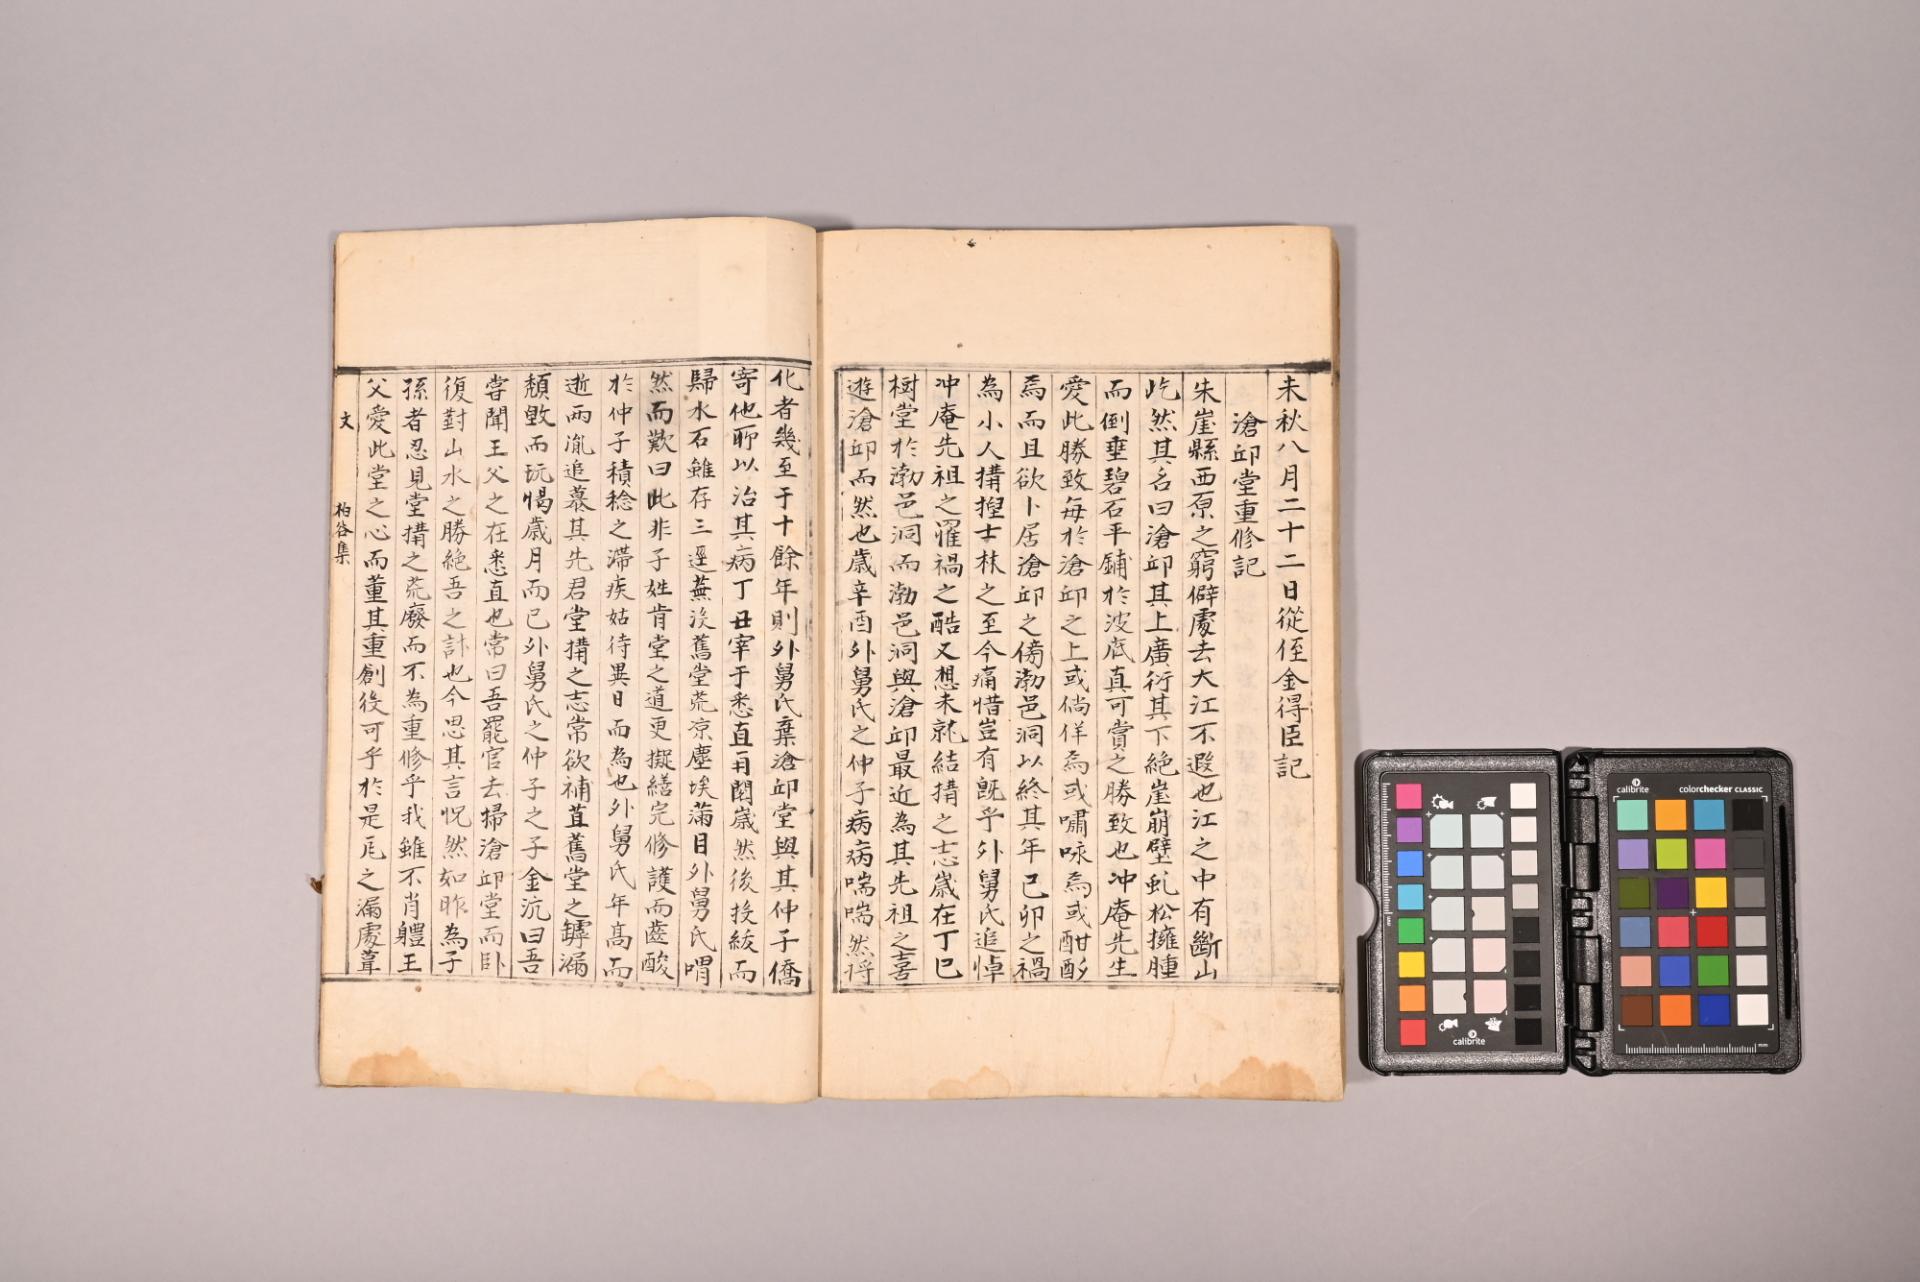 未秋八月二十二日從侄金得臣記
滄邱堂重修記
朱崖縣西原之窮僻處去大江不遐也江之中有斷山
屹然其名曰滄邱其上廣衍其下絶崖崩壁虬松擁腫
而倒垂碧石平鋪於波底真可賞之勝致也冲庵先生
愛此勝致每於滄邱之上或倘佯焉或嘯咏焉或酣酌
焉而且欲卜居滄邱之傍渤邑洞以終其年己卯之禍
為小人搆捏士林之至今痛惜豈有旣乎外舅氏追悼
冲庵先祖之罹禍之酷又想未就結搆之志歲在丁巳
樹堂於渤邑洞而渤邑洞與滄邱最近為其先祖之喜
遊滄邱而然也歲辛酉外舅氏之仲子病病喘喘然将
化者幾至于十餘年則外舅氏棄滄邱堂與其仲子僑
寄他所以治其病丁丑宰于悉直再閱歲然後投紱而
歸水石雖存三逕蕪沒舊堂荒凉塵埃滿目外舅氏喟
然而歎曰此非子姓肯堂之道更擬繕完修護而齒酸
於仲子積稔之滯疾姑待異日而為也外舅氏年髙而
逝两胤追慕其先君堂搆之志常欲補苴舊堂之罅漏
頹毁而玩愒歲月而已外舅氏之仲子之子金沆曰吾
甞聞王父之在悉直也常曰吾罷官去掃滄邱堂而卧
復對山水之勝絶吾之計也今思其言怳然如昨為子
孫者忍見堂搆之荒廢而不為重修乎我雖不肖軆王
父愛此堂之心而董其重創後可乎於是瓦之漏處葺
文 柏谷集
calibrite
calibrite colorchecker CLASSIC
mm